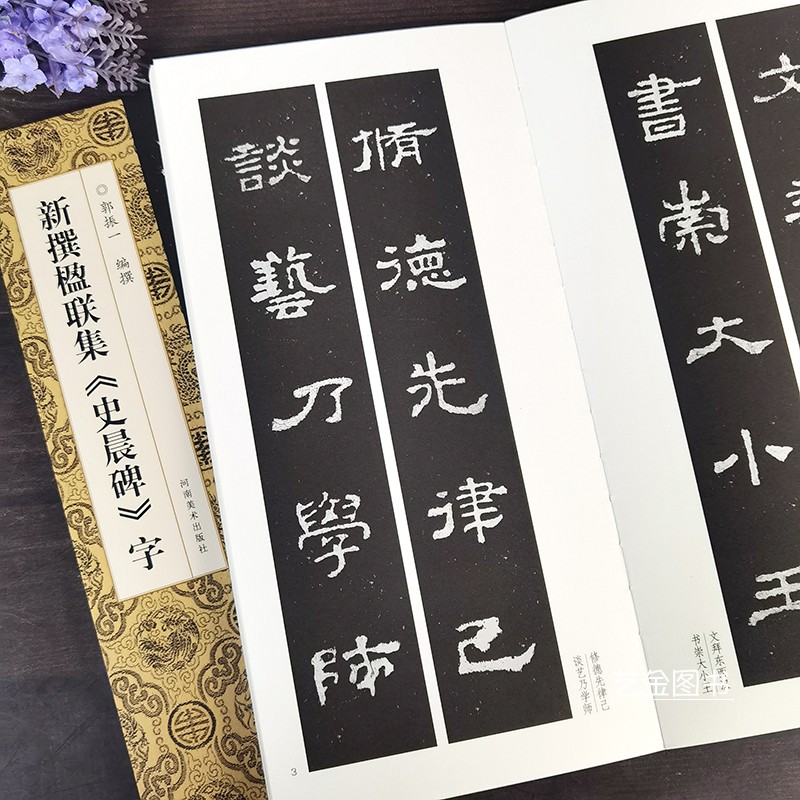 ◎郭振一 编撰
新撰楹联集《史晨碑》字
河南美术出版社
脩德先律己
談藝乃學師
修德先律己
谈艺乃学师
3
文
書崇大小王
文拜东西
书崇大小王
金图书